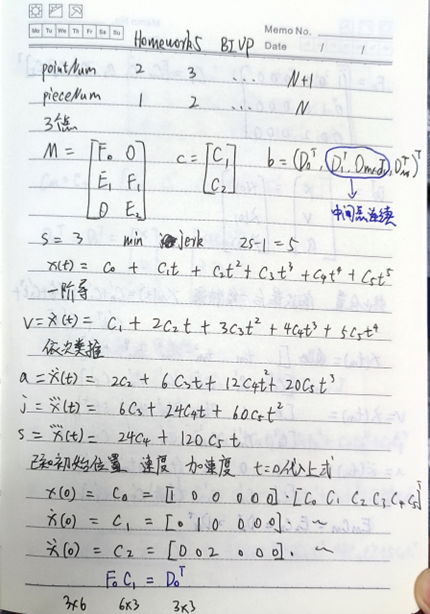 Memo No.
Mo Tu We Th Fr Sa Su
Homework5 BIVP
Date / /
pointNum 2 3 ... N+1
pieceNum 1 2 ... N
3个点
M = [F₀ 0; E₁ F₁; 0 E₂] c = [C₁; C₂] b = (D₀ᵀ, D₁ᵀ, 0m×d̄ᵢ, Dₘᵀ)ᵀ
中间点连续
s = 3 min jerk 2s-1 = 5
x(t) = C₀ + C₁t + C₂t² + C₃t³ + C₄t⁴ + C₅t⁵
一阶导
v = ẋ(t) = C₁ + 2C₂t + 3C₃t² + 4C₄t³ + 5C₅t⁴
依次类推
a = ẍ(t) = 2C₂ + 6C₃t + 12C₄t² + 20C₅t³
j = x⃛(t) = 6C₃ + 24C₄t + 60C₅t²
s = x⃜(t) = 24C₄ + 120C₅t
已知初始位置 速度 加速度 t=0代入上式
x(0) = C₀ = [1 0 0 0 0 0]·[C₀ C₁ C₂ C₃ C₄ C₅]ᵀ
ẋ(0) = C₁ = [0 1 0 0 0 0]· ~
ẍ(0) = C₂ = [0 0 2 0 0 0]· ~
F₀C₁ = D₀ᵀ
3x6 6x3 3x3